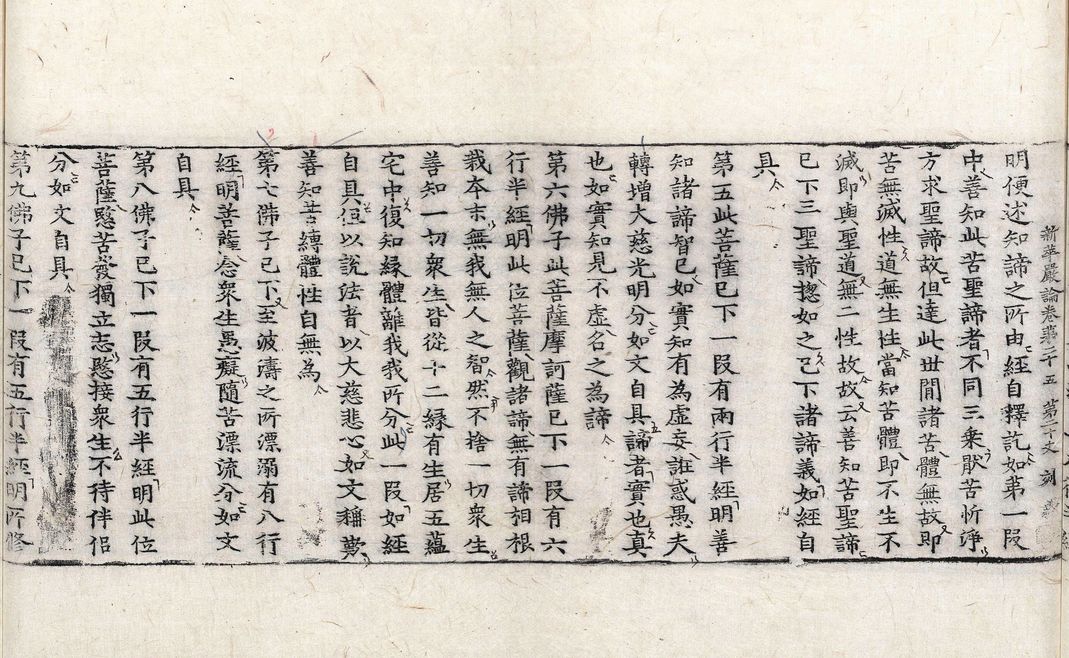 新華嚴論卷第二十五 第二十丈 刻
明便述知諦之所由經自釋訖如第一段
中善知此苦聖諦者不同三乘猒苦忻淨
方求聖諦故但達此世間諸苦體無故即
苦無滅性道無生性當知苦體即不生不
滅即與聖道無二性故故云善知苦聖諦
已下三聖諦揔如之已下諸諦義如經自
具
第五此菩薩已下一段有兩行半經明善
知諸諦智已如實知有為虛妄誑惑愚夫
轉增大慈光明分如文自具諦者實也真
也如實知見不虛名之為諦
第六佛子此菩薩摩訶薩已下一段有六
行半經明此位菩薩觀諸諦無有諦相根
栽本末無我無人之智然不捨一切衆生
善知一切衆生皆從十二緣有生居五蘊
宅中復知緣體離我我所分此一段如經
自具但以說法者以大慈悲心如文稱歎
善知苦縛體性自無為
第七佛子已下至波濤之所漂溺有八行
經明菩薩念衆生愚癡隨苦漂流分如文
自具
第八佛子已下一段有五行半經明此位
菩薩愍苦發獨立志愍接衆生不待伴侶
分如文自具
第九佛子已下一段有五行半經明所修